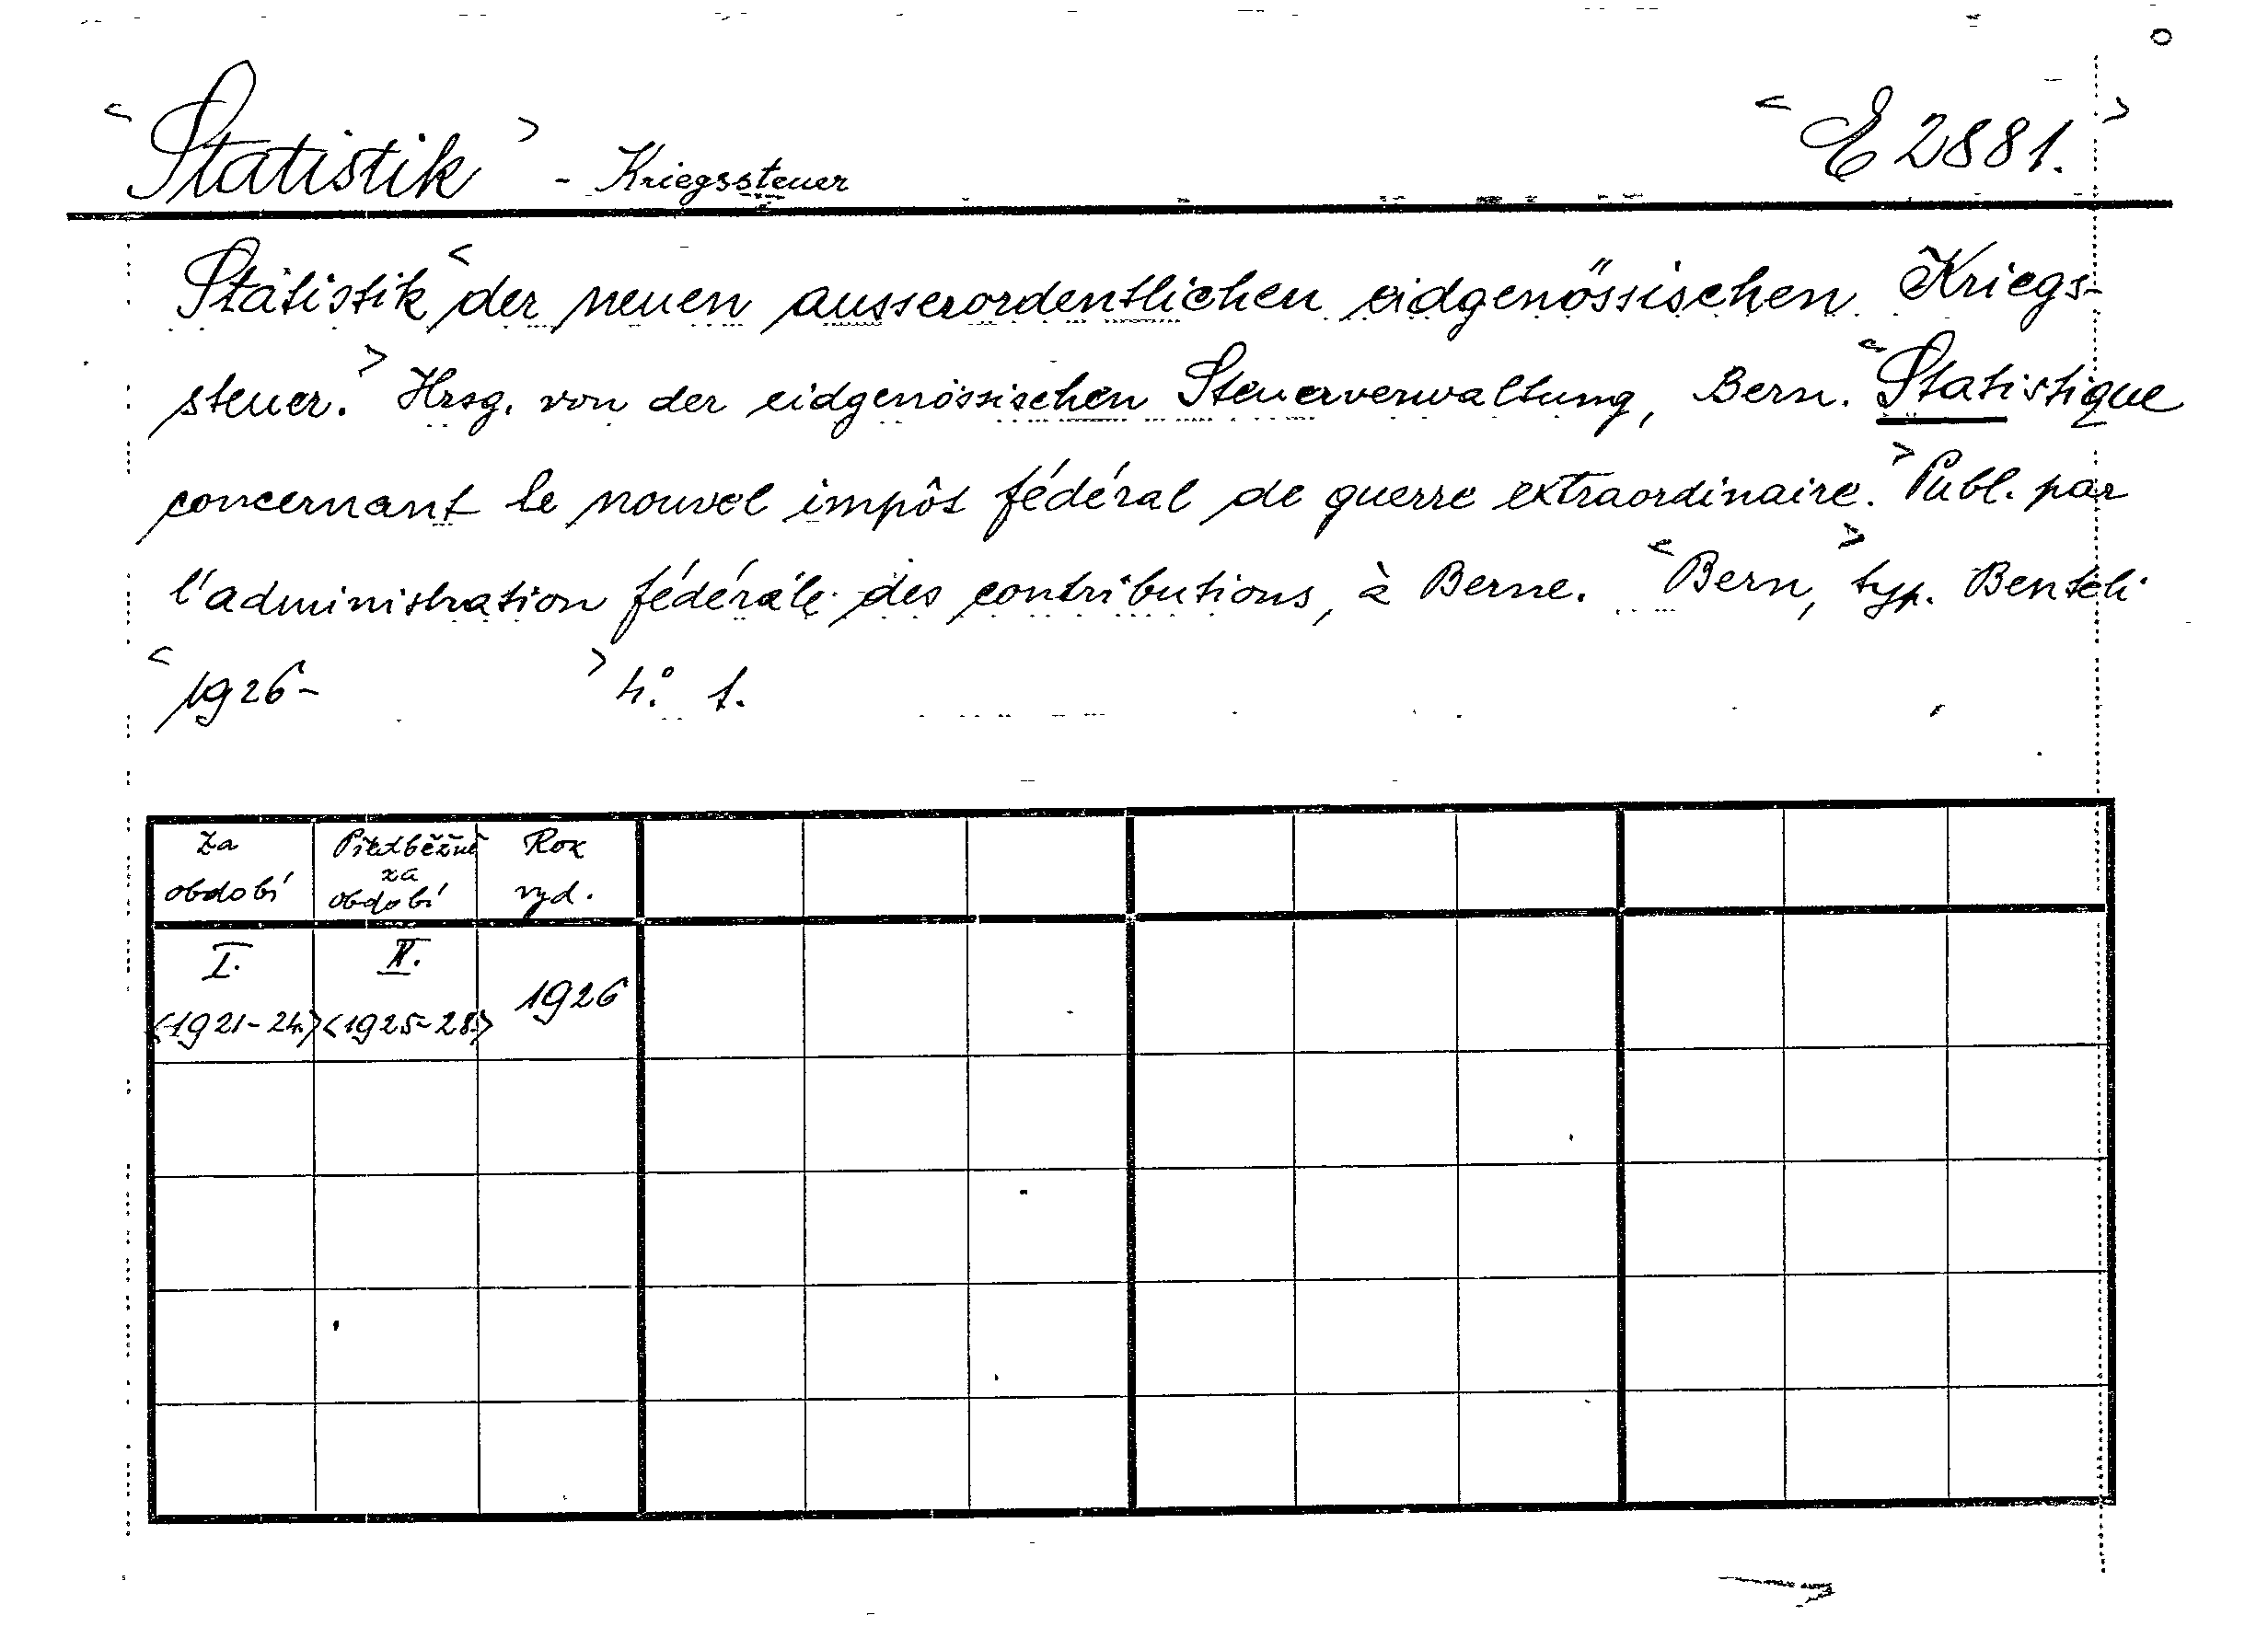 <Statistik> - Kriegssteuer <E 2881.>
Statistik <der neuen ausserordentlichen eidgenössischen Kriegs-
steuer.> Hrsg. von der eidgenössischen Steuerverwaltung, Bern. <Statistique
concernant le nouvel impôt fédéral de guerre extraordinaire.> Publ. par
l'administration fédérale des contributions, à Berne. <Bern,> typ. Benteli
<1926- > 4.° f.
Za období Předběžně za období Rok vyd.
I. II. 1926
<1921-24.> <1925-28.>